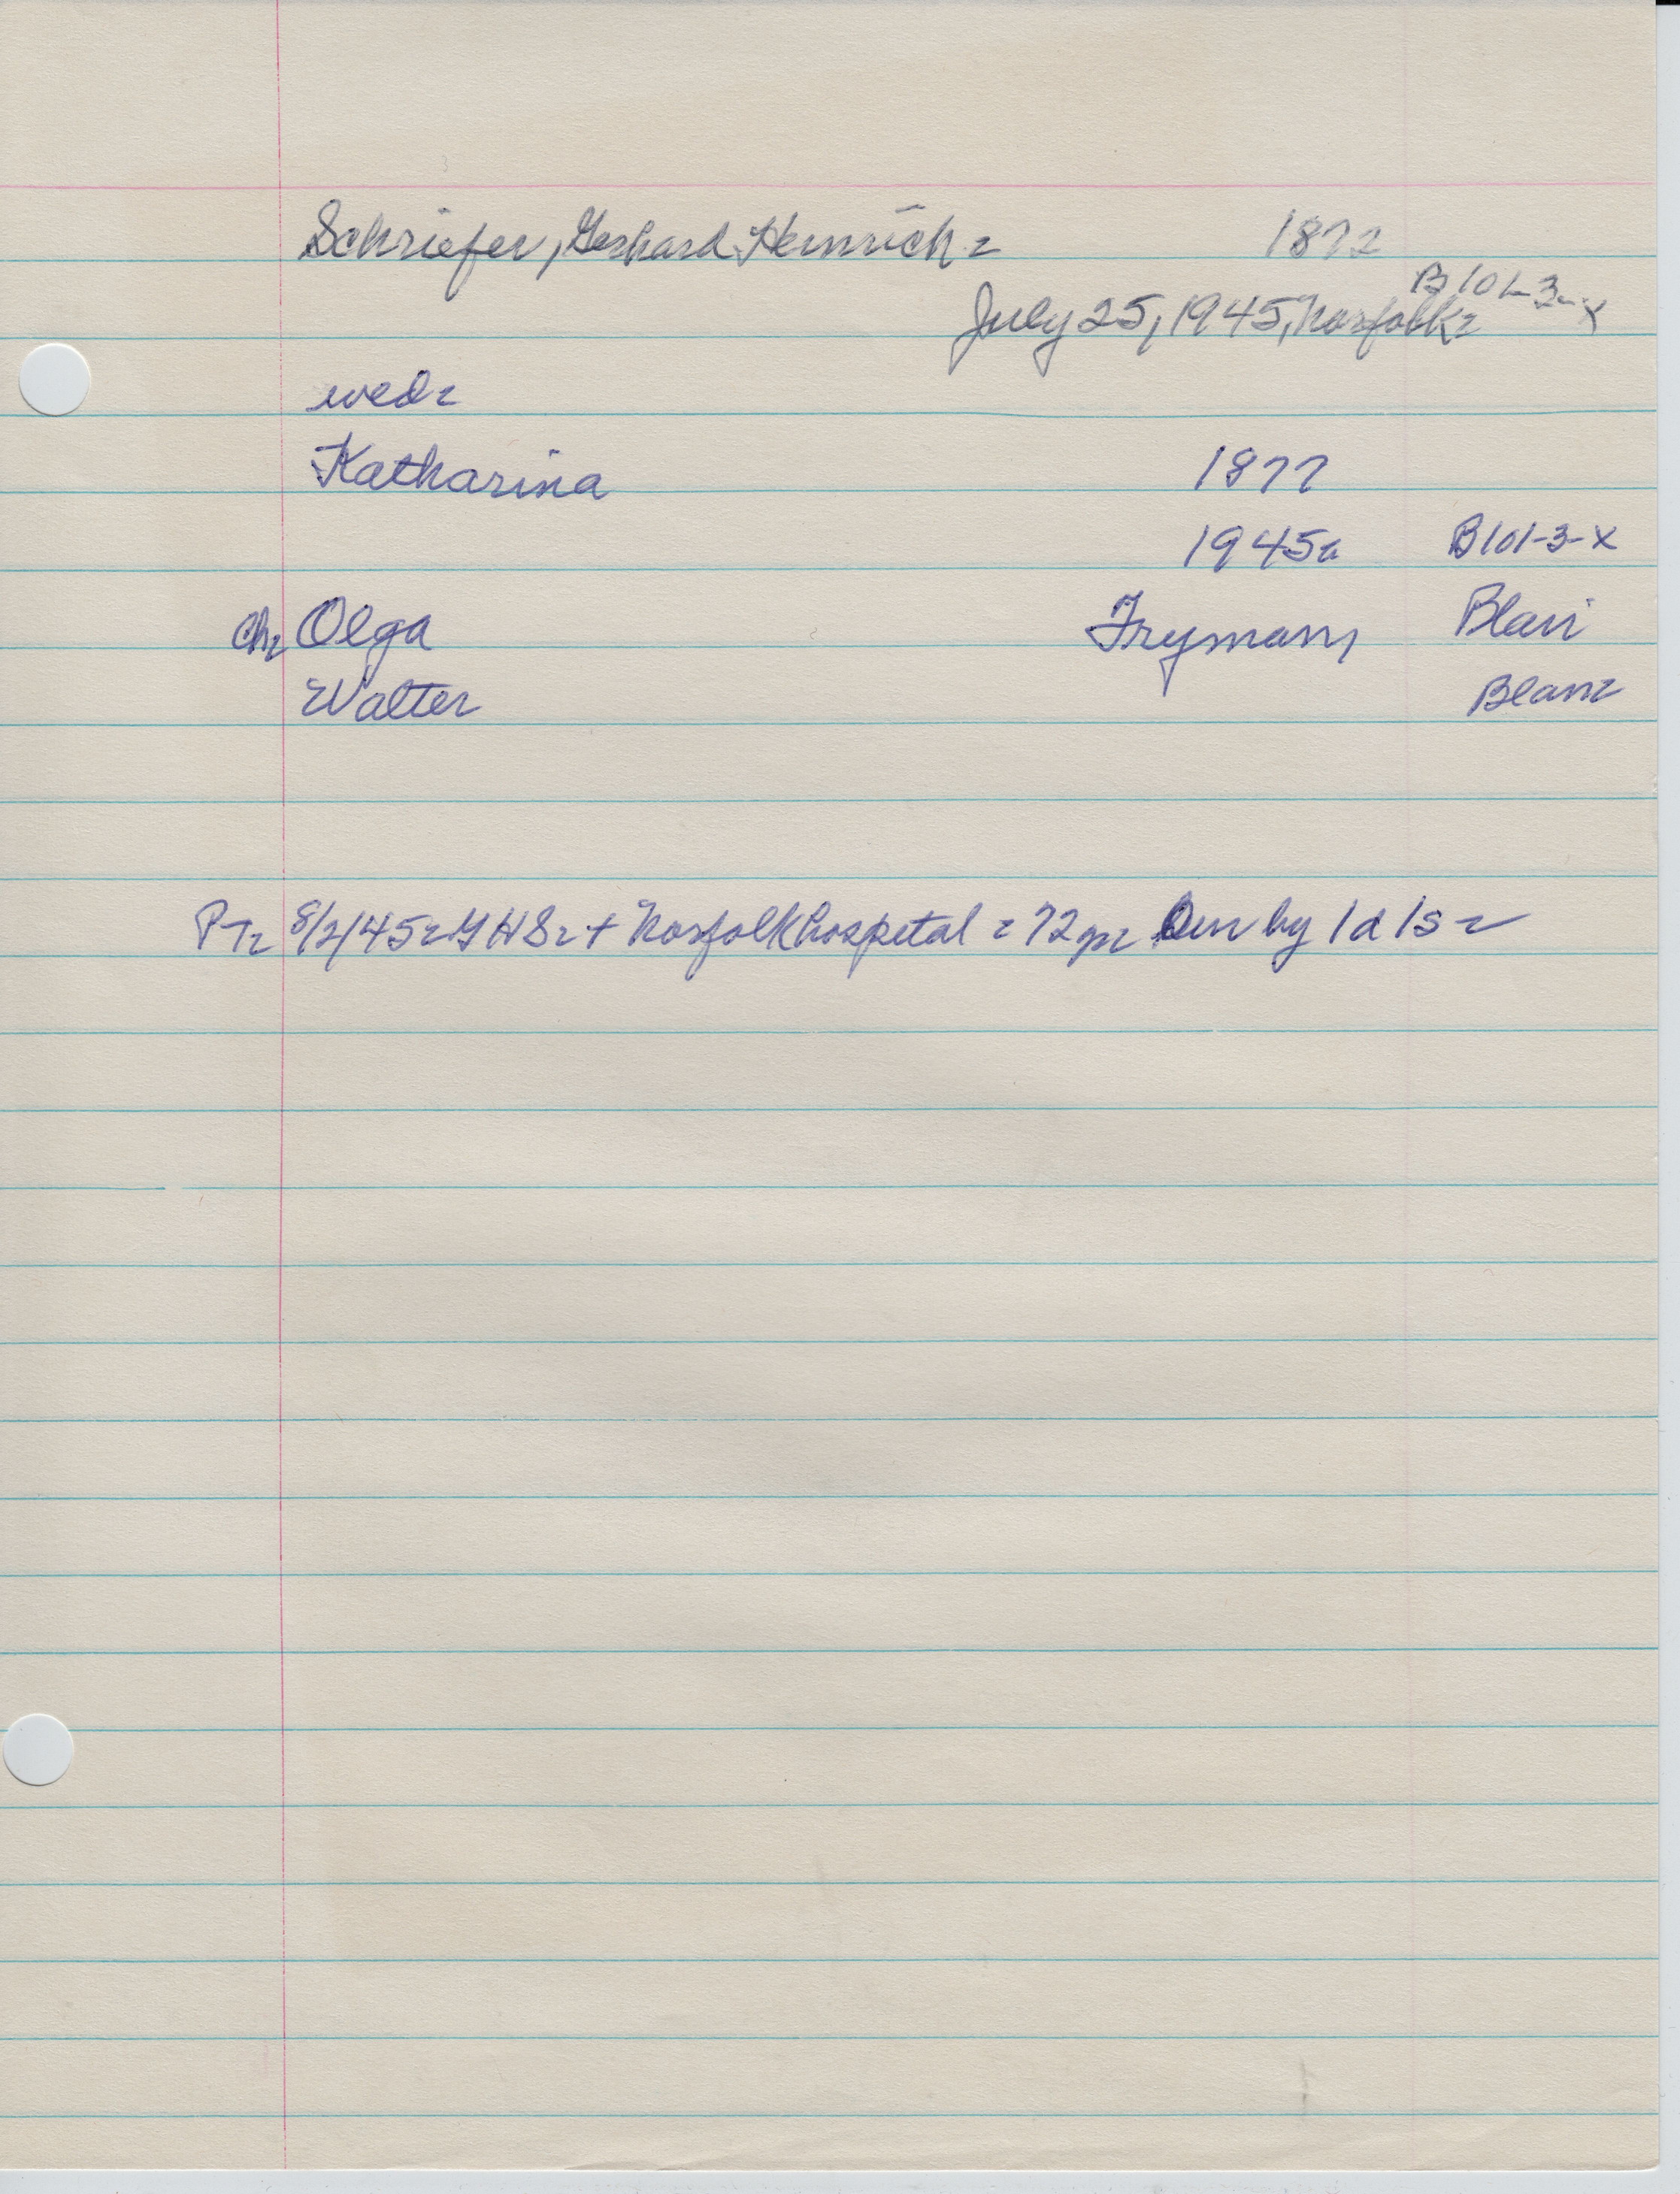 Schriefer, Gerhard Heinrich 1872
B101-3-X
July 25, 1945, Norfolk
wed
Katharina 1877
1945 B101-3-X
Ch Olga Fryman, Blair
Walter Blair
PT 8/2/45 GHS + Norfolk hospital 72 yr Sur by 1d 1s